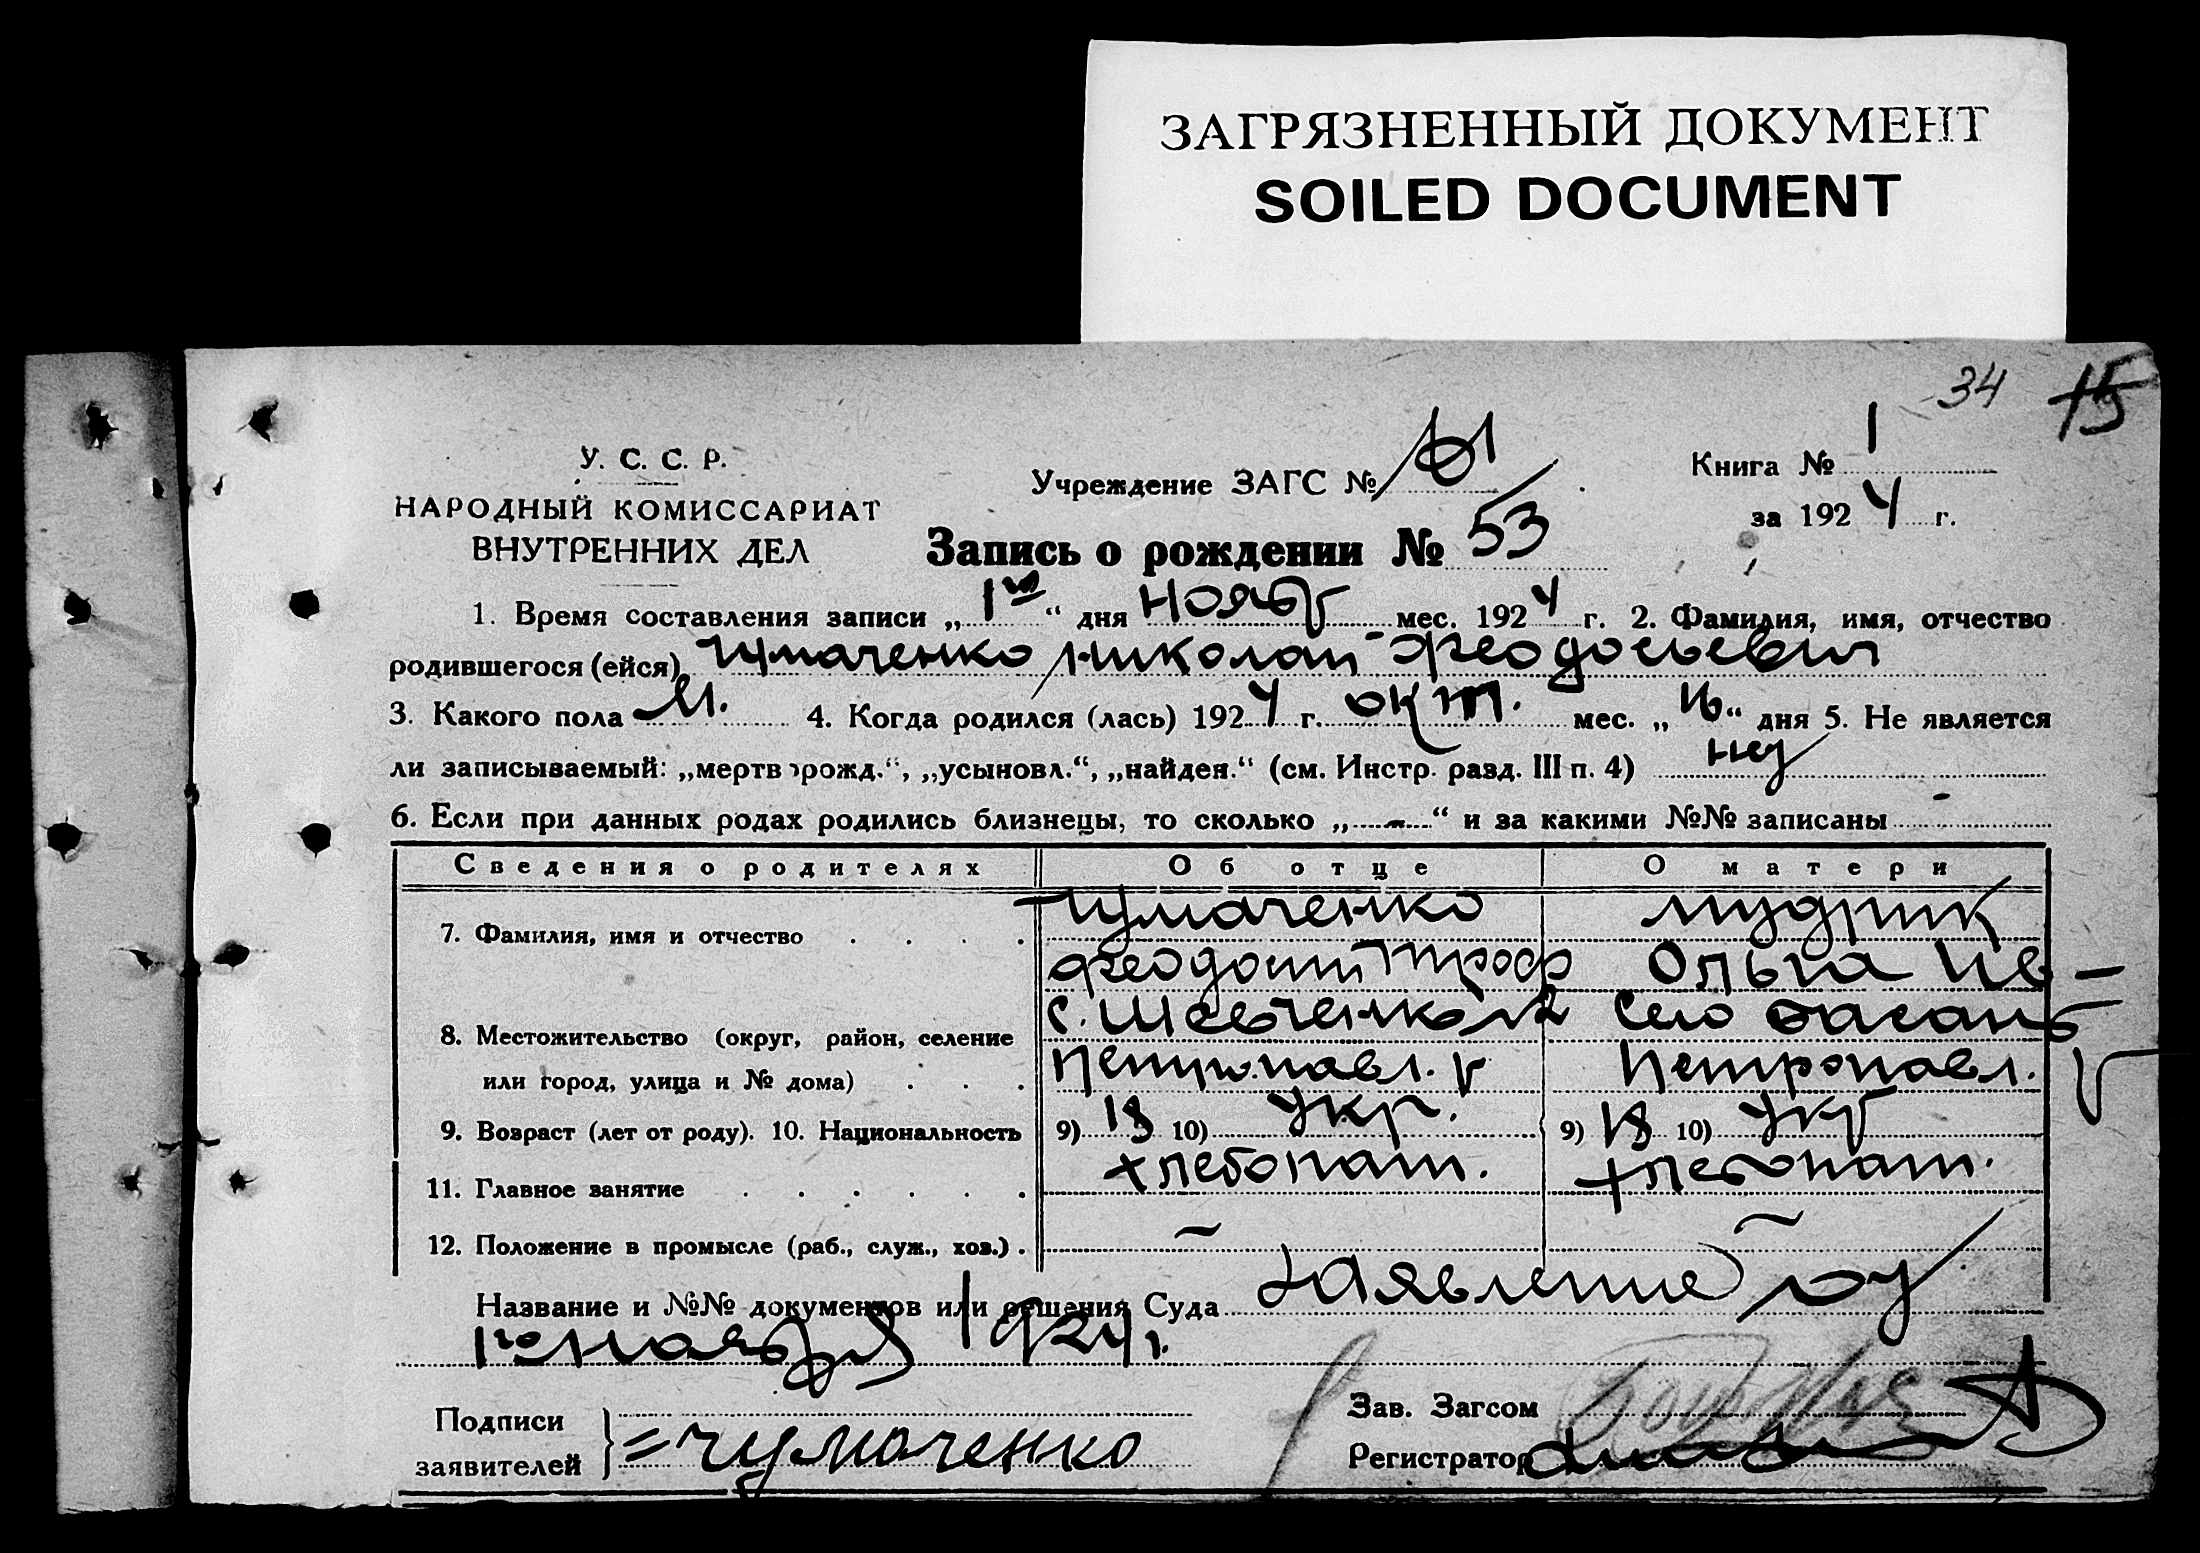 ЗАГРЯЗНЕННЫЙ ДОКУМЕНТ
SOILED DOCUMENT
34 15
У. С. С. Р.
НАРОДНЫЙ КОМИССАРИАТ
ВНУТРЕННИХ ДЕЛ
Учреждение ЗАГС №
Книга № 1
за 1924 г.
Запись о рождении № 53
1. Время составления записи „1го“ дня Нояб мес. 1924 г. 2. Фамилия, имя, отчество
родившегося (ейся) Чумаченко Николай Феодосьевич
3. Какого пола М. 4. Когда родился (лась) 1924 г. окт. мес. „16“ дня 5. Не является
ли записываемый: „мертворожд.“, „усыновл.“, „найден.“ (см. Инстр. разд. III п. 4) нет
6. Если при данных родах родились близнецы, то сколько „-“ и за какими №№ записаны -
Сведения о родителях Об отце О матери
7. Фамилия, имя и отчество Чумаченко Мудрик
Феодосий Троф Ольга Ив
8. Местожительство (округ, район, селение с. Шевченково Село Басань
или город, улица и № дома) Петропавл. р Петропавл.
9. Возраст (лет от роду). 10. Национальность 9) 18 10) Укр. 9) 18 10) Укр
11. Главное занятие хлебопаш. хлебопаш.
12. Положение в промысле (раб., служ., хоз.) . - -
Название и №№ документов или решения Суда Заявление
1го ноября 1924 г.
Подписи
заявителей } = Чумаченко
Зав. Загсом
Регистратор